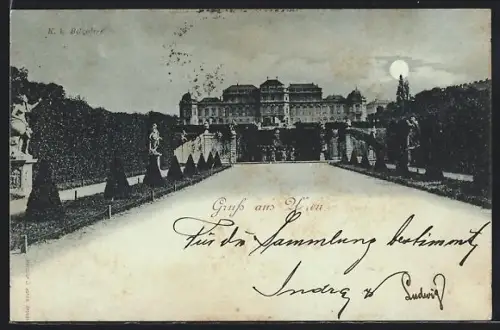 K. k. Belvedere
Gruß aus Wien
Für die Sammlung bestimmt
Ludwig